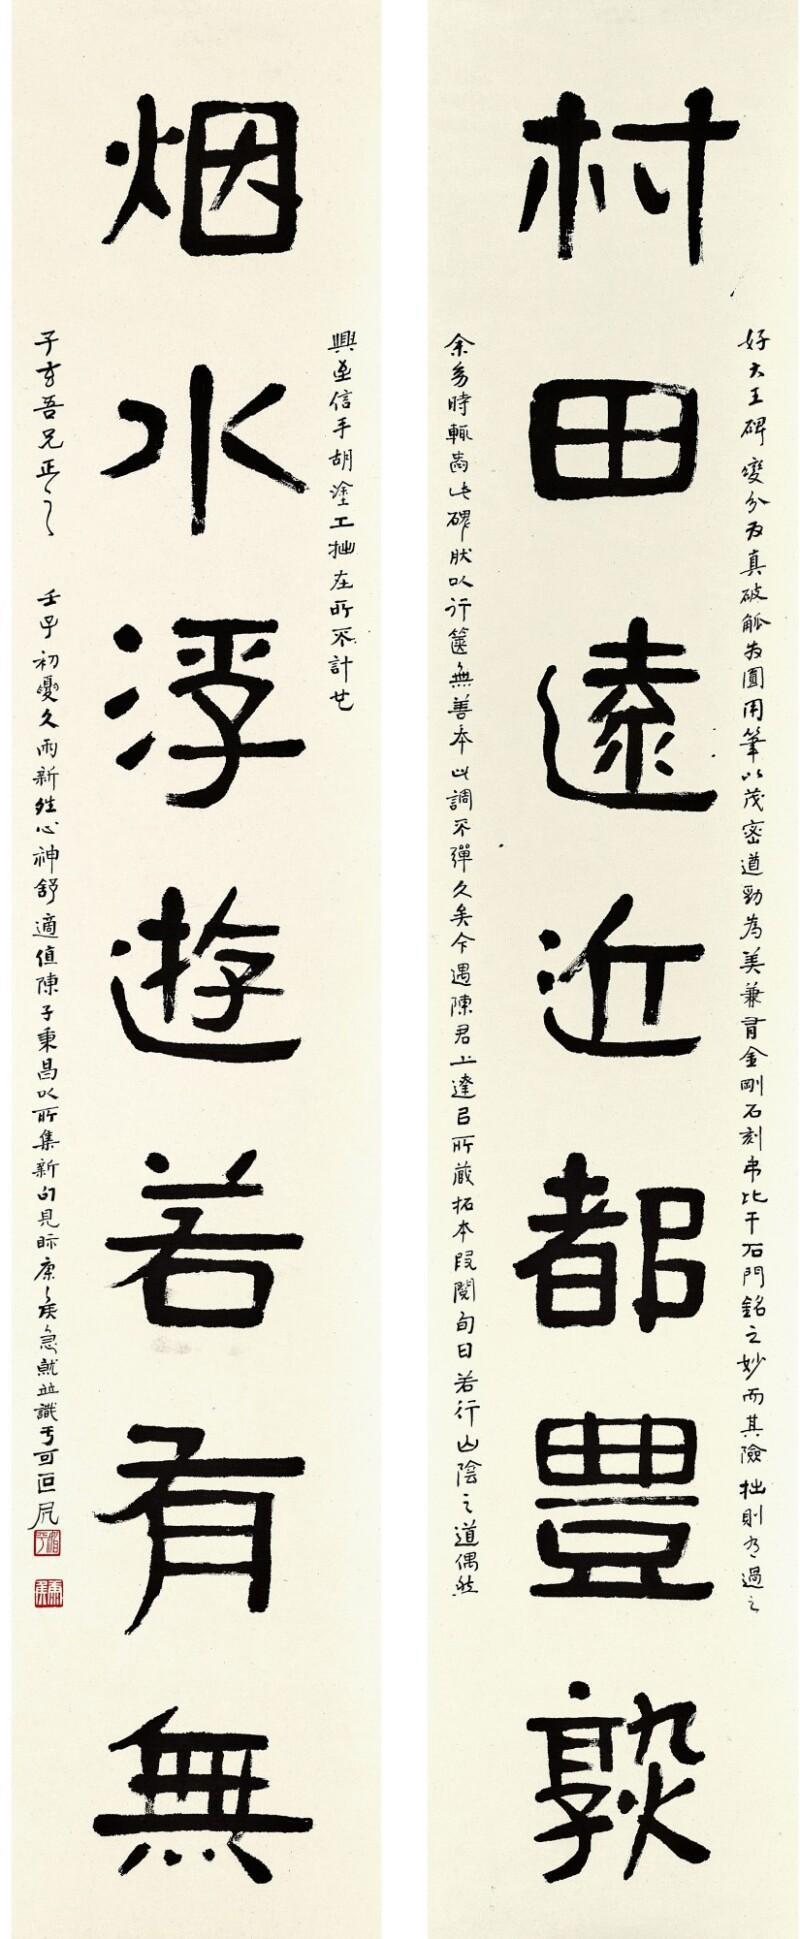 好大王碑變分为真破觚为圓用筆以茂密遒勁為美兼有金剛石刻弔比干石門銘之妙而其險拙則過之
村田遠近都豊熟
余時輒此碑狀以行篋無善本此調不彈久矣今遇陳君上達以所藏拓本段閱旬日若行山陰之道偶然
興至信手胡塗工拙在所不計也
烟水浮遊若有無
子玄吾兄正之
壬子初夏久雨新晴心神舒適值陳子秉昌以所集新句見眎康侯急就並識于可叵居